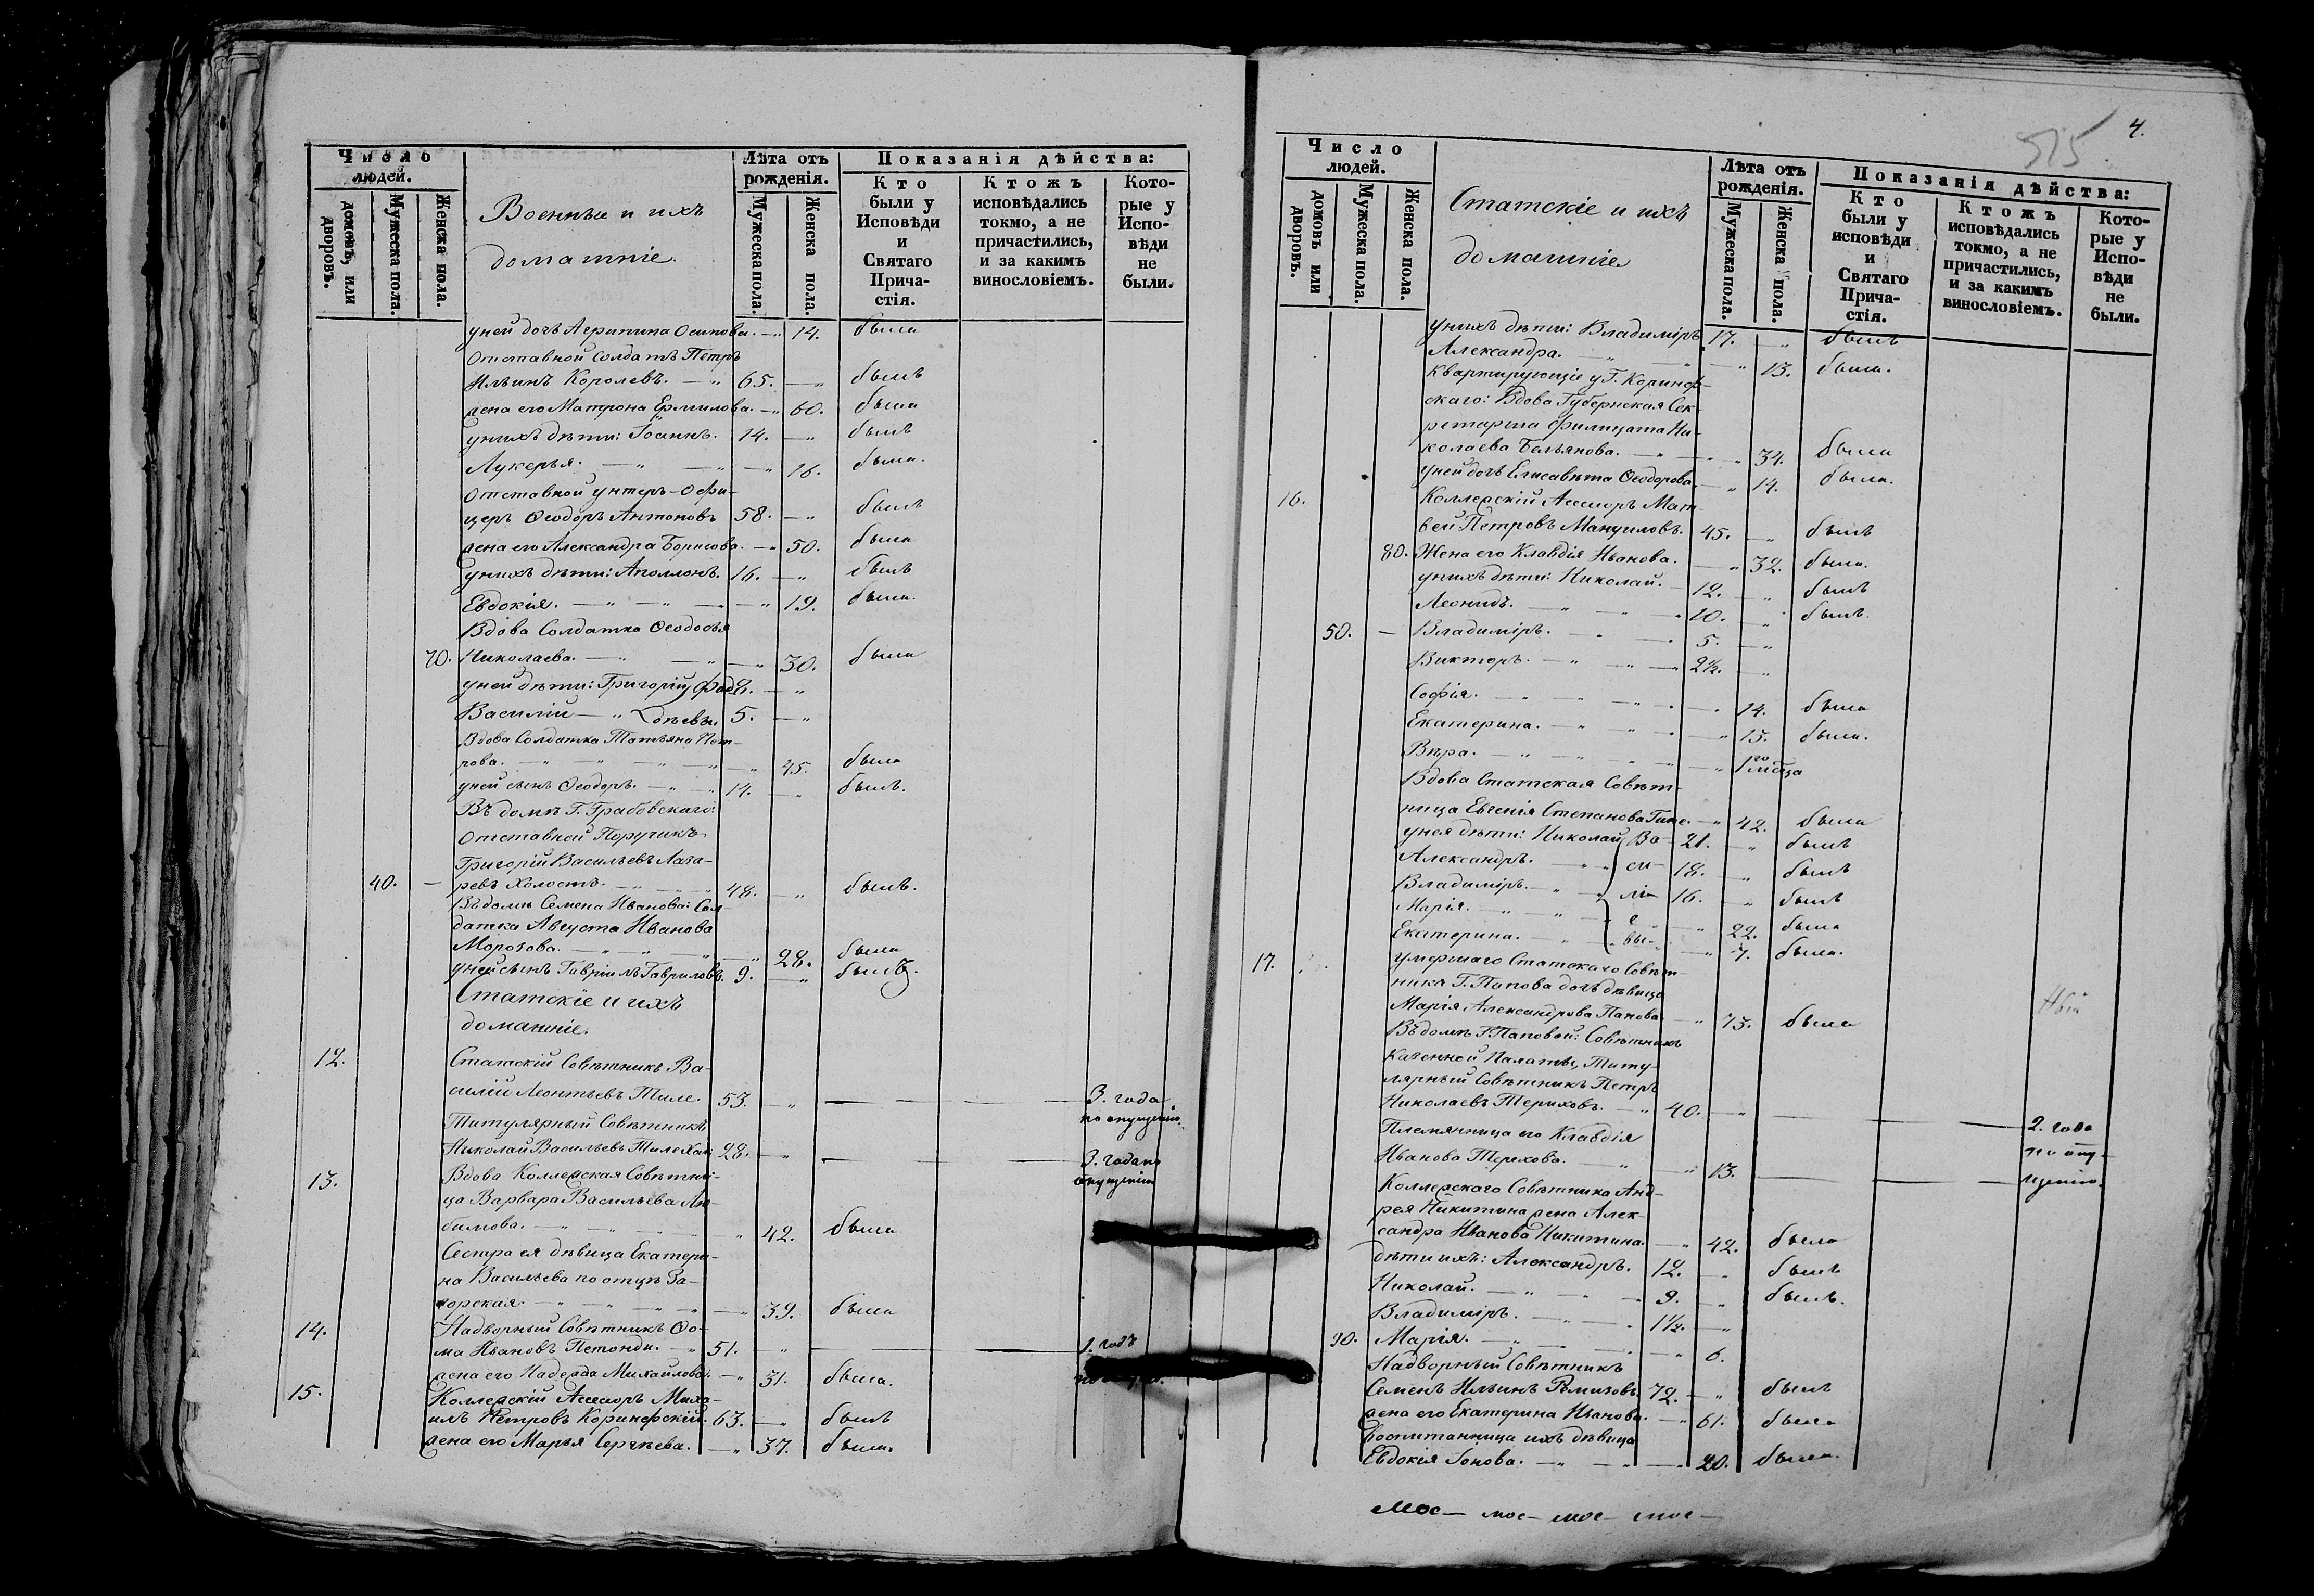 Число людей.
домовъ, или дворовъ.
Мужеска пола.
Женска пола.
Военные и ихъ
домашніе.
Лѣта отъ рожденія.
Мужеска пола.
Женска пола.
Показанія дѣйства:
Кто были у Исповѣди и Святаго Причастія.
Ктожъ исповѣдались токмо, а не причастились, и за какимъ винословіемъ.
Которые у Исповѣди не были.
у ней дочь Агрипина Осипова. — „ 14. была
Отставной Солдатъ Петръ
Ильинъ Королевъ. — „ 65. — „ былъ
жена его Матрона Ермилова. — „ 60. была
у нихъ дѣти: Іоаннъ. 14. — „ былъ
Лукерья. — „ — „ — „ 16. была.
Отставной унтеръ-Офи-
церъ Ѳеодоръ Антоновъ 58. — „ былъ
жена его Александра Борисова. — „ 50. была
у нихъ дѣти: Аполлонъ. 16. — „ былъ
Евдокія. — „ — „ — „ 19. была.
Вдова Солдатка Ѳеодосья
70. Николаева. — „ — „ — „ 30. была
у ней дѣти: Григорій Фад- 8. — „
Василій — „ дѣевы. 5. — „
Вдова Солдатка Татьяна Пет-
рова. — „ — „ — „ 45. была
у ней сынъ Ѳеодоръ. — „ 14. — „ былъ.
Въ домѣ Г. Грабовскаго:
Отставной Поручикъ
Григорій Васильевъ Лаза-
40. — ревъ холостъ. — „ 48. — „ былъ.
Въ домѣ Семена Иванова: Сол-
датка Августа Иванова
Морозова. — „ — „ — „ 28. была
у ней сынъ Гавріилъ Гавриловъ. 9. — „ былъ.
Статскіе и ихъ
домашніе.
12. Статскій Совѣтникъ Ва-
силій Леонтьевъ Тиле. 53. — „ — — — 3. года
по опущенію.
Титулярный Совѣтникъ
Николай Васильевъ Тиле Хол: 28. — „ — — 3. года по
опущенію
13. Вдова Коллежская Совѣтни-
ца Варвара Васильева Лю-
бимова. — „ — „ 42. была
Сестра ея дѣвица Екатери-
на Васильева по отцѣ За-
горская. — „ — „ — „ 39. была
14. Надворный Совѣтникъ Ѳо-
ма Ивановъ Петонди. — „ 51. — „ — — 1. годъ
жена его Надежда Михайлова. — „ 31. была.
15. Коллежскій Ассесоръ Миха-
илъ Петровъ Коринфскій. 63. — „ былъ
жена его Марья Сергѣева. — „ 37. была.
515
4.
Число людей.
домовъ или дворовъ.
Мужеска пола.
Женска пола.
Статскіе и ихъ
домашніе
Лѣта отъ рожденія.
Мужеска пола.
Женска пола.
Показанія дѣйства:
Кто были у исповѣди и Святаго Причастія.
Ктожъ исповѣдались токмо, а не причастились, и за какимъ винословіемъ.
Которые у Исповѣди не были.
у нихъ дѣти: Владиміръ 17. — „ былъ
Александра. — „ — „ 13. была.
Квартирующіе у Г. Коринф-
скаго: Вдова Губернская Сек-
ретарша Филицата Ни-
колаева Бельянова. — „ — „ 34. была
у ней дочь Елисавета Ѳеодорова. — „ 14. была.
16. Коллежскій Ассесоръ Мат-
вей Петровъ Мануиловъ. 45. — „ былъ
80. Жена его Клавдія Иванова. — „ 32. была.
у нихъ дѣти: Николай. — 12. — „ былъ
Леонидъ. — „ — „ 10. — „ былъ.
50. — Владиміръ. — „ — „ 5. — „
Викторъ. — „ — „ 2½. — „
Софія. — „ — „ — „ 14. была
Екатерина. — „ — „ — „ 15. была.
Вѣра. — „ — „ — „ 1го мѣсяца
Вдова Статская Совѣт-
ница Евгенія Степанова Тиле. — „ 42. была
у нея дѣти: Николай Ва- 21. — „ былъ
Александръ. — „ си- 18. — „ былъ
Владиміръ. — „ лі- 16. — „ былъ
Марія. — „ — „ е- „ 22. была
Екатерина. — „ вы. — „ 7. была.
17. умершаго Статскаго Совѣт-
ника Г. Панова дочь дѣвица
Марія Александрова Панова. — „ 75. была
Въ домѣ Г. Пановой: Совѣтникъ
Казенной Палаты, Титу-
лярный Совѣтникъ Петръ
Николаевъ Териховъ. — „ 40. — „ — — 2. года
Племянница его Клавдія по опу-
Иванова Терехова. — „ — „ 13. — — щенію.
Коллежскаго Совѣтника Анд-
рея Никитина жена Алек-
сандра Иванова Никитина. — „ 42. была
дѣти ихъ: Александръ. 12. — „ былъ
Николай. — „ — „ 9. — „ былъ.
Владиміръ. — „ — „ 1½. — „
90. Марія. — „ — „ — „ 6.
Надворный Совѣтникъ
Семенъ Ильинъ Ремизовъ 72. — „ былъ
жена его Екатерина Иванова. — „ 61. была
Воспитанница ихъ дѣвица
Евдокія Іонова. — „ — „ — „ 20. была.
мос— мос— мос— мос—